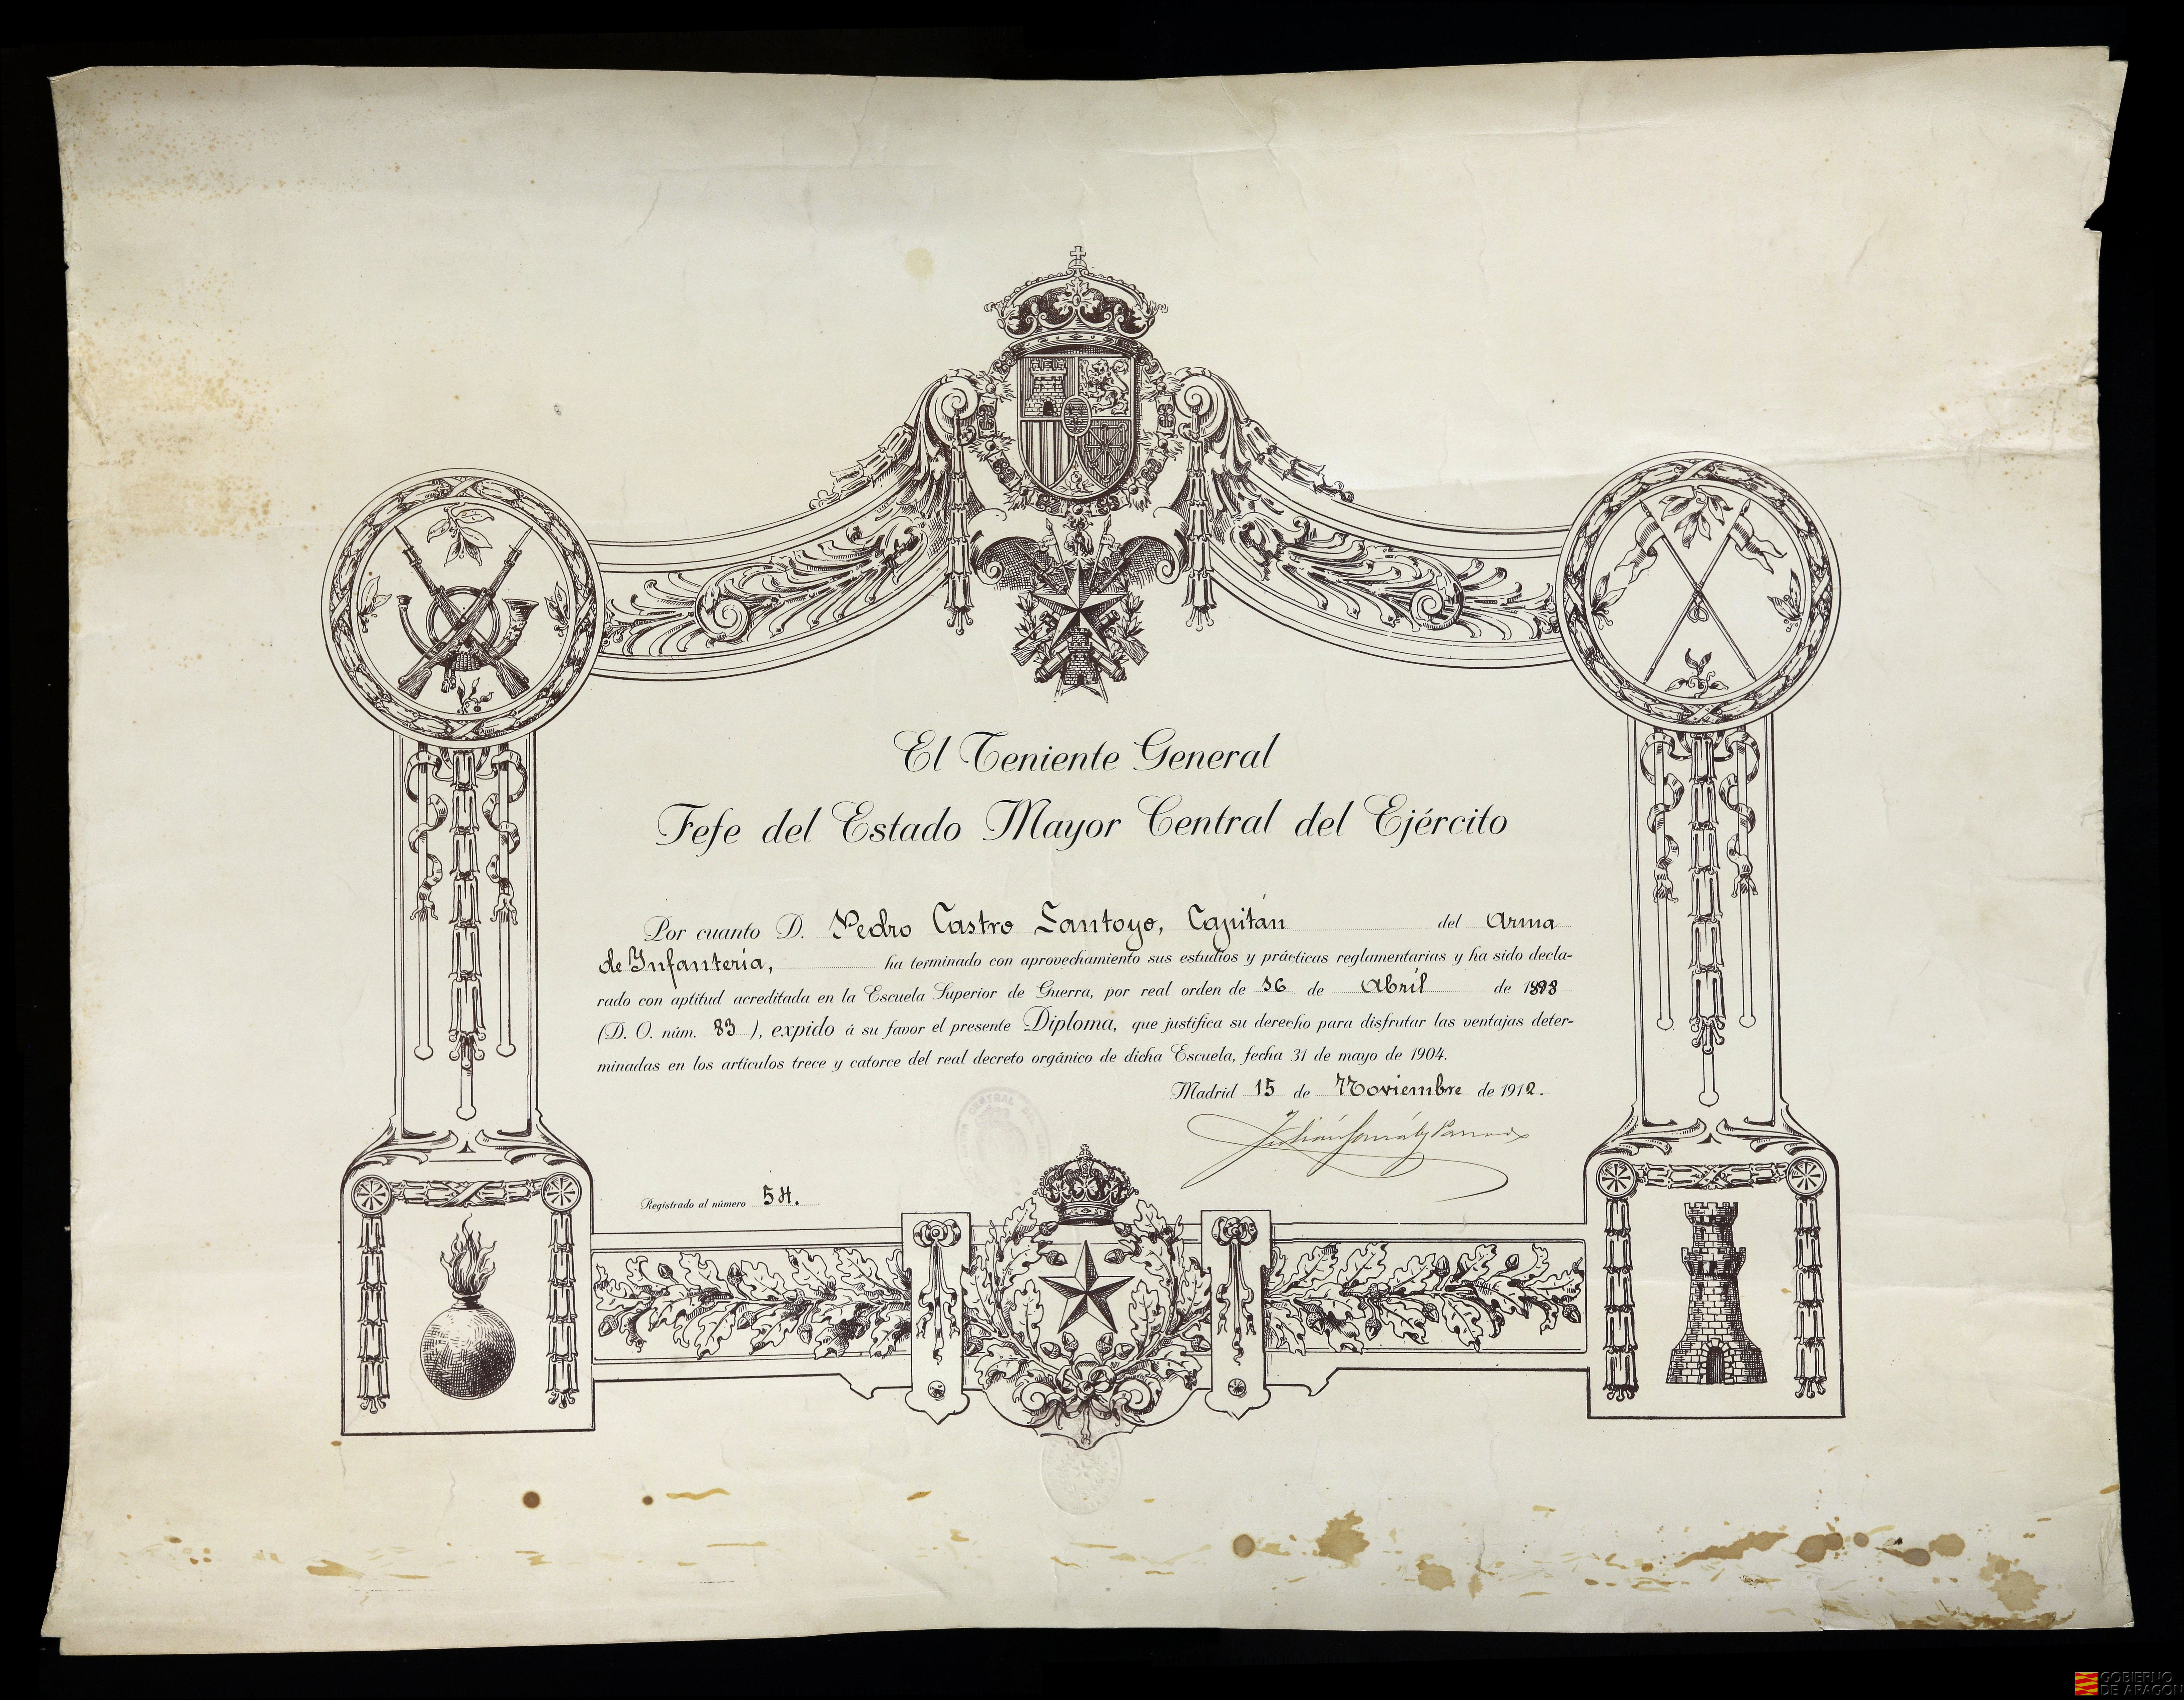 El Teniente General
Jefe del Estado Mayor Central del Ejército
Por cuanto D. Pedro Castro Santoyo, Capitán del Arma
de Infantería, ha terminado con aprovechamiento sus estudios y prácticas reglamentarias y ha sido decla-
rado con aptitud acreditada en la Escuela Superior de Guerra, por real orden de 16 de Abril de
(D. O. núm. 83 ), expido á su favor el presente Diploma, que justifica su derecho para disfrutar las ventajas deter-
minadas en los artículos trece y catorce del real decreto orgánico de dicha Escuela, fecha 31 de mayo de 1904.
Madrid 15 de Noviembre de 1912.
Registrado al número 54.
GOBIERNO
DE ARAGON